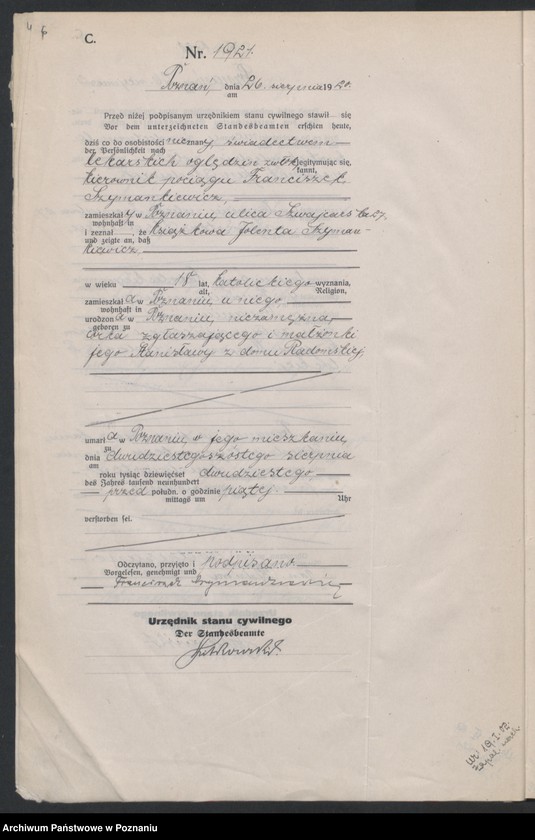 C.
Nr. 1921.
Poznań, dnia 26. sierpnia 1920.
am
Przed niżej podpisanym urzędnikiem stanu cywilnego stawił się
Vor dem unterzeichneten Standesbeamten erschien heute,
dziś co do osobistości nieznany świadectwem
der Persönlichkeit nach
lekarskich oględzin zwłok legitymując się,
kannt,
kierownik pociągu Franciszek
Szymankiewicz,
zamieszkały w Poznaniu, ulica 27,
wohnhaft in
i zeznał, że książkowa Szyman-
und zeigte an, daß
kiewicz
w wieku 18 lat, katolickiego wyznania,
alt, Religion,
zamieszkała w Poznaniu u niego
wohnhaft in
urodzona w Poznaniu, niezamężna,
geboren zu
córka zgłaszającego i małżonki
jego Stanisławy z domu Radomskiej
umarła w Poznaniu w jego mieszkaniu,
zu
dnia dwudziestegoszóstego sierpnia
am
roku tysiąc dziewięćset dwudziestego,
des Jahres tausend neunhundert
przed połudn. o godzinie piątej.
mittags um Uhr
verstorben sei.
Odczytano, przyjęto i podpisano
Vorgelesen, genehmigt und
Franciszek Szymankiewicz
Urzędnik stanu cywilnego
Der Standesbeamte
ur. 19.I.
Archiwum Państwowe w Poznaniu